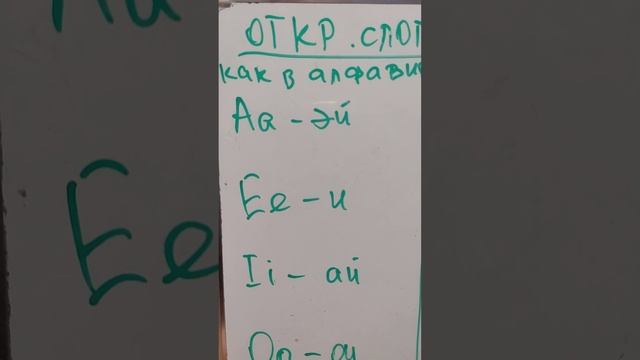 ОТКР. СЛОГ
как в алфави
Aa - эй
Ee - и
Ii - ай
Oo - оу